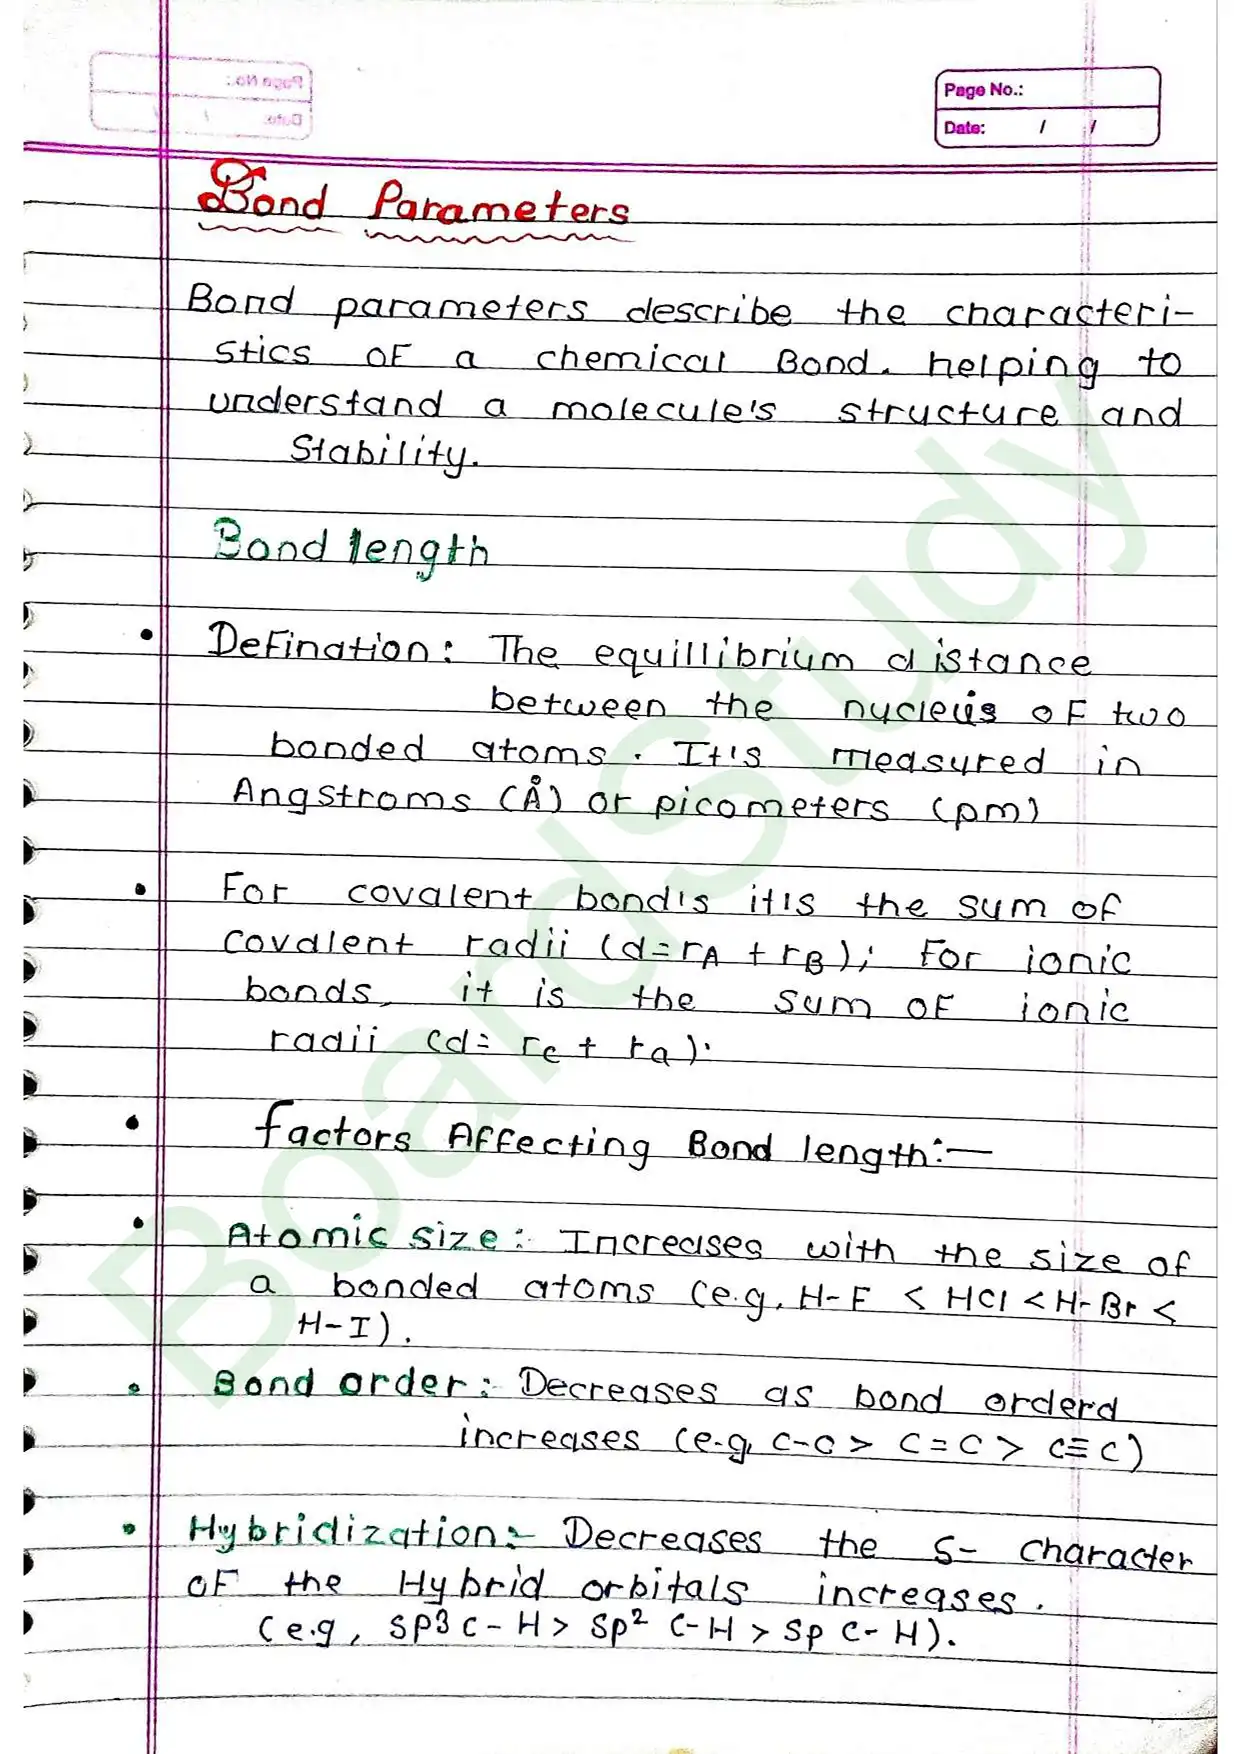 Page No.:
Date: / /
Bond Parameters
Bond parameters describe the characteri-
stics OF a chemical Bond. helping to
understand a molecule's structure and
Stability.
Bond length
• DeFination: The equillibrium distance
between the nucleus OF two
bonded atoms. It's measured in
Angstroms (Å) or picometers (pm)
• For covalent bond's it's the sum of
covalent radii (d=rA + rB); For ionic
bonds, it is the sum OF ionic
radii (d= rc + ra).
• factors AFFecting Bond length:—
• Atomic size: Increases with the size of
a bonded atoms (e.g, H-F < HCl < H-Br <
H-I).
• Bond order: Decreases as bond orderd
increases (e.g, C-C > C=C > C≡C)
• Hybridization:- Decreases the S- character
OF the Hybrid orbitals increases.
(e.g, SP3 C-H > SP² C-H > SP C-H).
BoardStudy